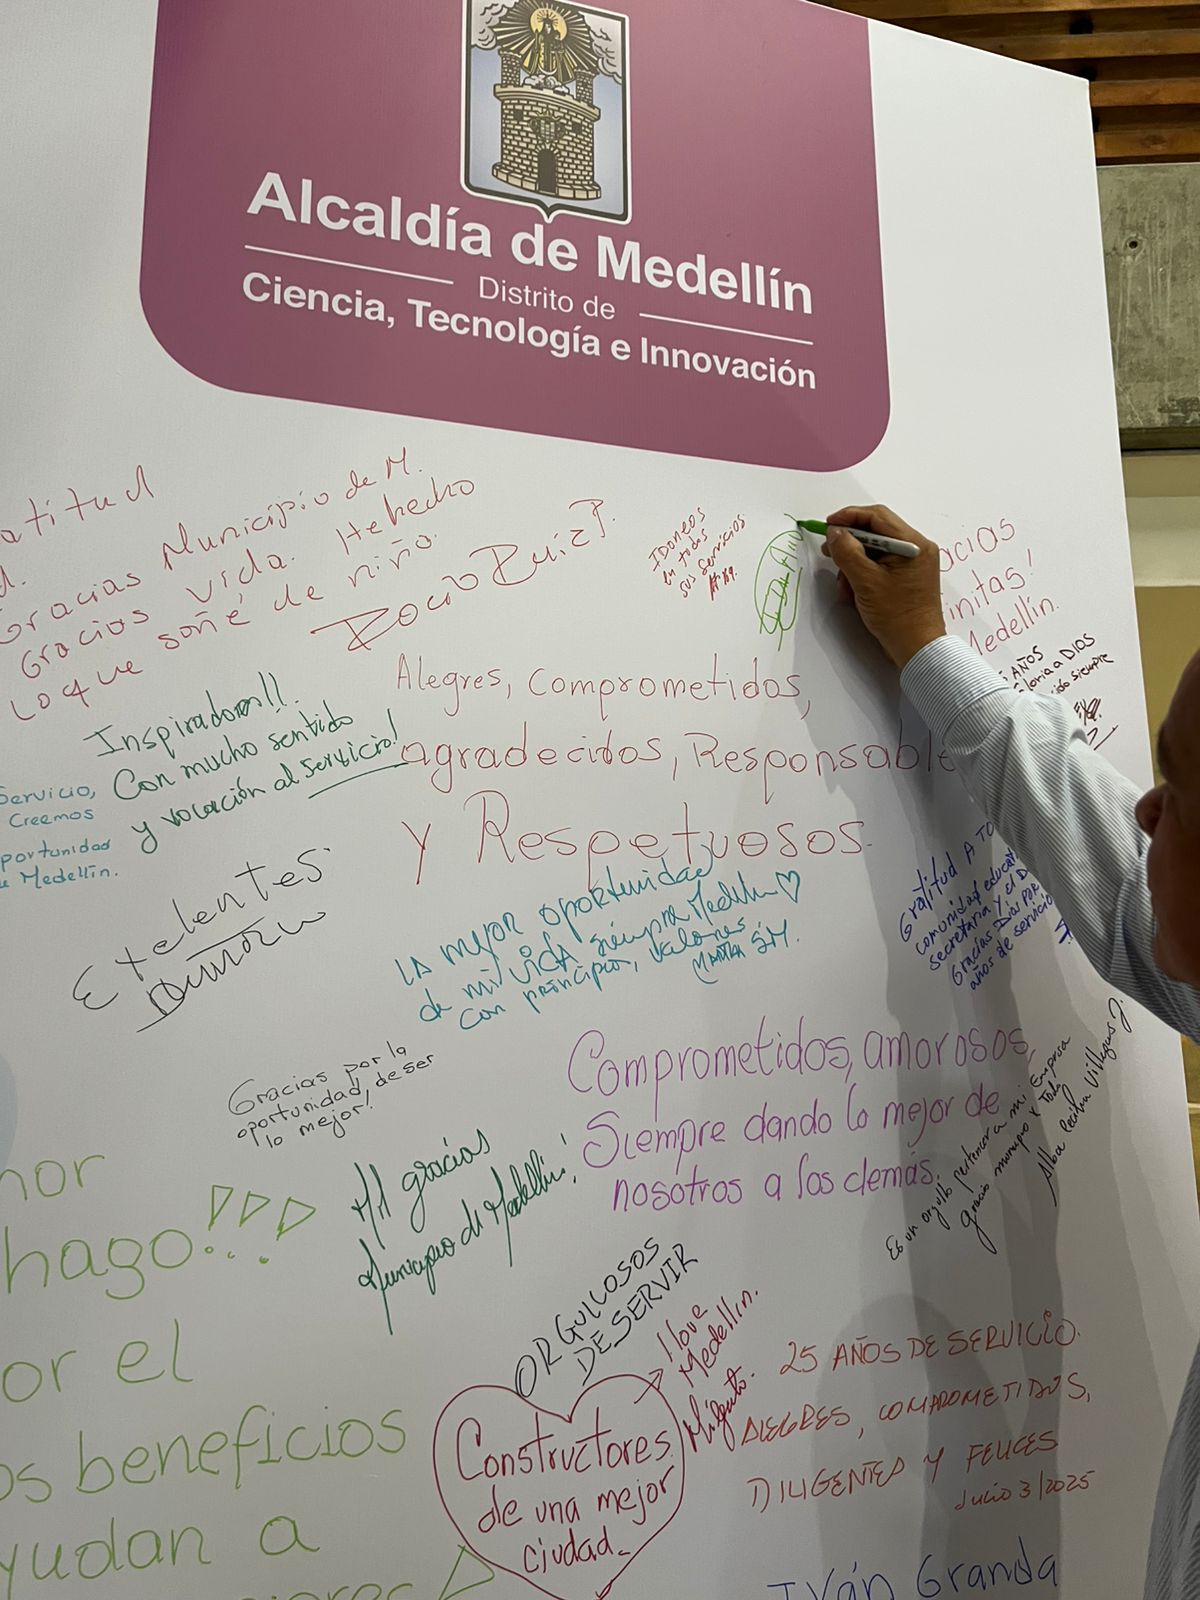 Alcaldía de Medellín
Distrito de
Ciencia, Tecnología e Innovación
Gracias Municipio de M.
Gracias vida. He hecho
Lo que soñé de niño.
Rocio Ruiz P.
Idoneos
en todos
sus servicios
Inspiradores!!
Con mucho sentido
y vocación al servicio!
Servicio,
Creemos
Medellín.
Alegres, Comprometidos,
agradecidos, Responsable
y Respetuosos.
Extelentes
LA mejor oportunidad
de mi vida siempre Medellin ♡
con principios, valores
MARTHA
Gracias por la
oportunidad, de ser
lo mejor!
Mil gracias
Municipio de Medellín!
Comprometidos, amorosos,
Siempre dando lo mejor de
nosotros a los demás.
Es un orgullo pertenecer a mi Empresa
gracias municipio x Todo
Alba Villegas J.
Gratitud A TO
comunidad educa
secretaria y el D
Gracias Dios por
años de servicio
acias
initas!
Medellín.
AÑOS
Gloria a DIOS
siempre
hago!!!
or el
os beneficios
yudan a
ORGULLOSOS
DE SERVIR
I love
Medellín.
Constructores
de una mejor
ciudad.
25 AÑOS DE SERVICIO.
ALEGRES, COMPROMETIDOS,
DILIGENTES Y FELICES
Julio 3/2025
Iván Granda